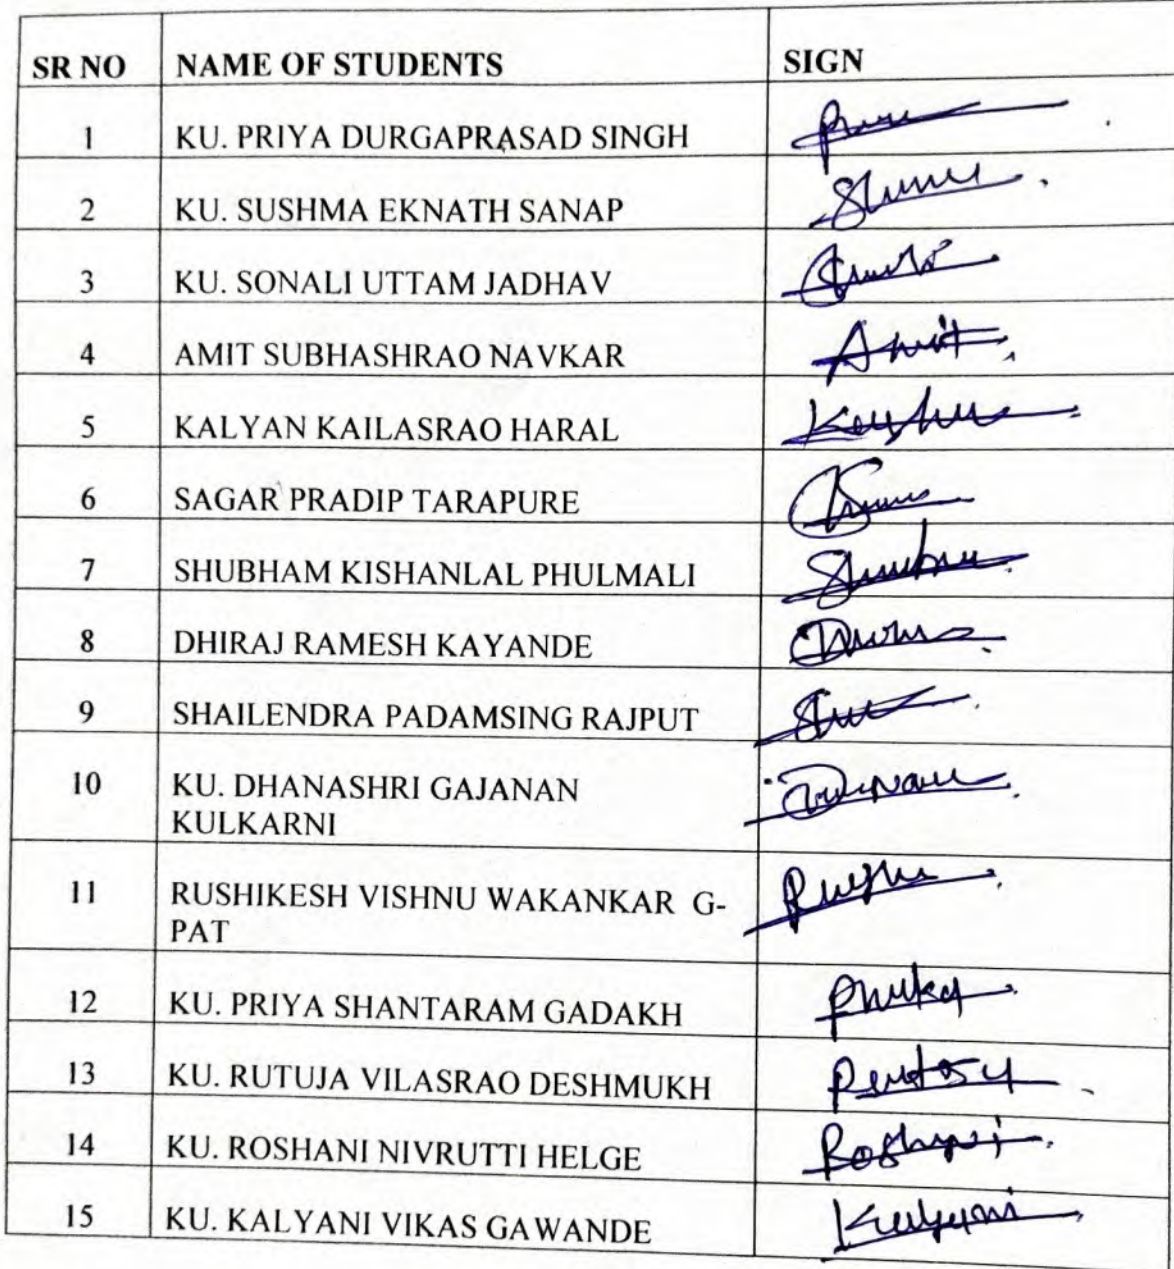 SR NO NAME OF STUDENTS SIGN
1 KU. PRIYA DURGAPRASAD SINGH
2 KU. SUSHMA EKNATH SANAP
3 KU. SONALI UTTAM JADHAV
4 AMIT SUBHASHRAO NAVKAR Amit
5 KALYAN KAILASRAO HARAL
6 SAGAR PRADIP TARAPURE
7 SHUBHAM KISHANLAL PHULMALI
8 DHIRAJ RAMESH KAYANDE
9 SHAILENDRA PADAMSING RAJPUT
10 KU. DHANASHRI GAJANAN
KULKARNI
11 RUSHIKESH VISHNU WAKANKAR G-
PAT
12 KU. PRIYA SHANTARAM GADAKH
13 KU. RUTUJA VILASRAO DESHMUKH
14 KU. ROSHANI NIVRUTTI HELGE
15 KU. KALYANI VIKAS GAWANDE Kalyani